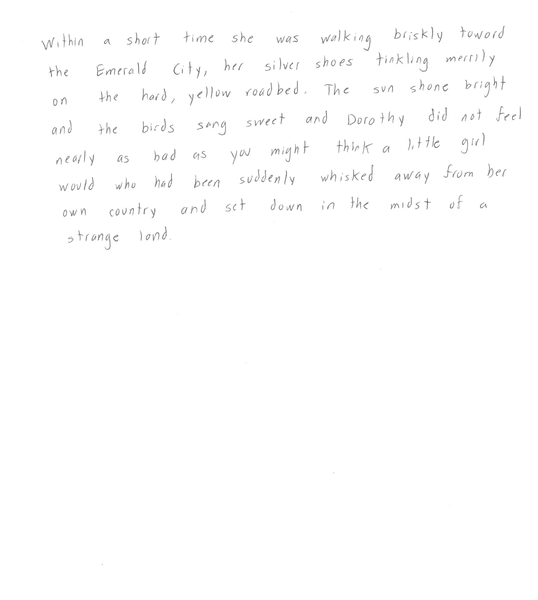 Within a short time she was walking briskly toward
the Emerald City, her silver shoes tinkling merrily
on the hard, yellow roadbed. The sun shone bright
and the birds sang sweet and Dorothy did not feel
nearly as bad as you might think a little girl
would who had been suddenly whisked away from her
own country and set down in the midst of a
strange land.